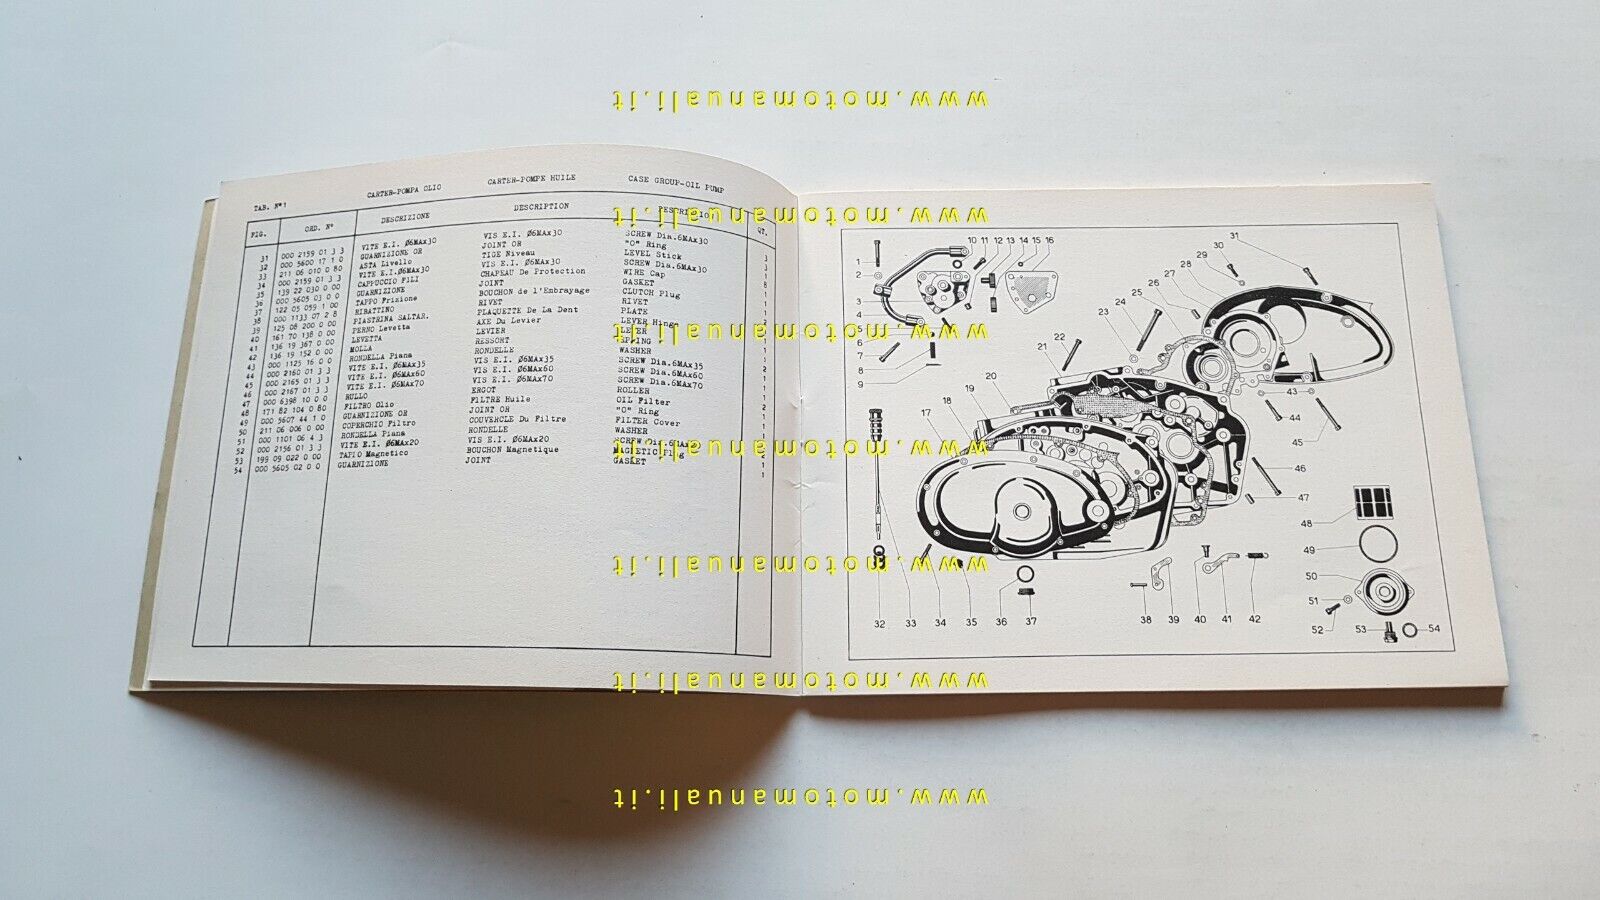 www.motomanuali.it
TAB. N°1 CARTER-POMPA OLIO CARTER-POMPE HUILE CASE GROUP-OIL PUMP
FIG. ORD. N° DESCRIZIONE DESCRIPTION DESCRIPTION QT.
31 000 2159 01 3 3 VITE E.I. Ø6MAx30 VIS E.I. Ø6MAx30 SCREW Dia.6MAx30
32 000 5600 17 1 0 GUARNIZIONE OR JOINT OR "O" Ring
33 211 06 010 0 80 ASTA Livello TIGE Niveau LEVEL Stick
34 000 2159 01 3 3 VITE E.I. Ø6MAx30 VIS E.I. Ø6MAx30 SCREW Dia.6MAx30
35 139 22 030 0 00 CAPPUCCIO FILI CHAPEAU De Protection WIRE Cap
36 000 5605 03 0 0 GUARNIZIONE JOINT GASKET
37 122 05 059 1 00 TAPPO Frizione BOUCHON de l'Embrayage CLUTCH Plug
38 000 1133 07 2 8 RIBATTINO RIVET RIVET
39 125 08 200 0 00 PIASTRINA SALTAR. PLAQUETTE De La Dent PLATE
40 161 70 138 0 00 PERNO Levetta AXE Du Levier LEVER Hinge
41 136 19 367 0 00 LEVETTA LEVIER LEVER
42 136 19 152 0 00 MOLLA RESSORT SPRING
43 000 1125 16 0 0 RONDELLA Piana RONDELLE WASHER
44 000 2160 01 3 3 VITE E.I. Ø6MAx35 VIS E.I. Ø6MAx35 SCREW Dia.6MAx35
45 000 2165 01 3 3 VITE E.I. Ø6MAx60 VIS E.I. Ø6MAx60 SCREW Dia.6MAx60
46 000 2167 01 3 3 VITE E.I. Ø6MAx70 VIS E.I. Ø6MAx70 SCREW Dia.6MAx70
47 000 6398 10 0 0 RULLO ERGOT ROLLER
48 171 82 104 0 80 FILTRO Olio FILTRE Huile OIL Filter
49 000 5607 44 1 0 GUARNIZIONE OR JOINT OR "O" Ring
50 211 06 006 0 00 COPERCHIO Filtro COUVERCLE Du Filtre FILTER Cover
51 000 1101 06 4 3 RONDELLA Piana RONDELLE WASHER
52 000 2156 01 3 3 VITE E.I. Ø6MAx20 VIS E.I. Ø6MAx20 SCREW
53 199 09 022 0 00 TAPPO Magnetico BOUCHON Magnetique MAGNETIC Plug
54 000 5605 02 0 0 GUARNIZIONE JOINT GASKET
www.motomanuali.it
www.motomanuali.it
www.motomanuali.it
www.motomanuali.it
www.motomanuali.it
www.motomanuali.it
10 11 12 13 14 15 16
1
2
3
4
5
6
7
8
9
17
18
19
20
21
22
23
24
25
26
27
28
29
30
31
43
44
45
46
47
48
49
50
51
52 53 54
32 33 34 35 36 37 38 39 40 41 42